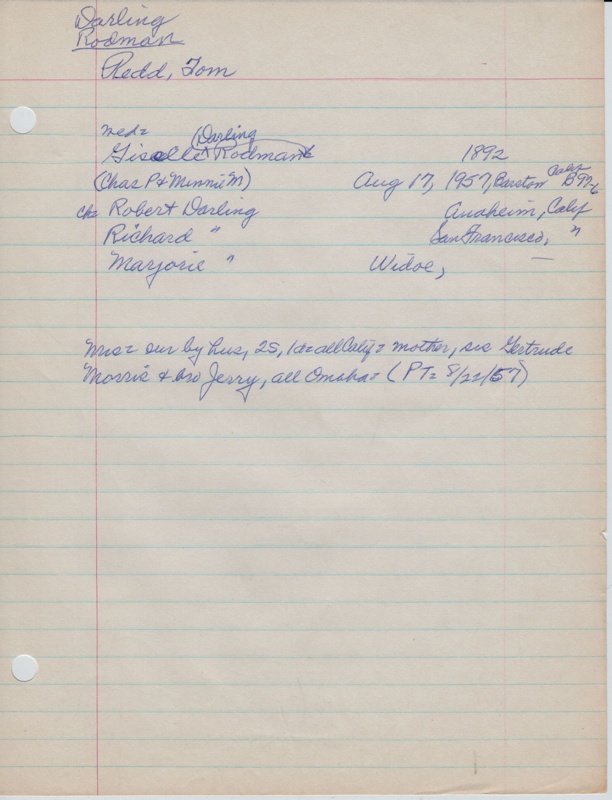 Darling
Rodman
Redd, Tom
med=
(Darling
Giselle Rodman 1892
(Chas P & Minnie M) Aug 17, 1957, Barston Calif B97-6
chs Robert Darling Anaheim, Calif
Richard " San Francisco, "
Marjorie " Widoe, —
Mrs= sur by hus, 2S, 1d= all Calif= mother, sis Gertrude
Morris & bro Jerry, all Omaha= (PT= 8/22/57)